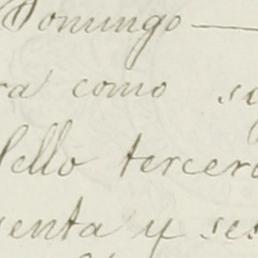 Domingo —
ra como
Sello tercero
senta y ses